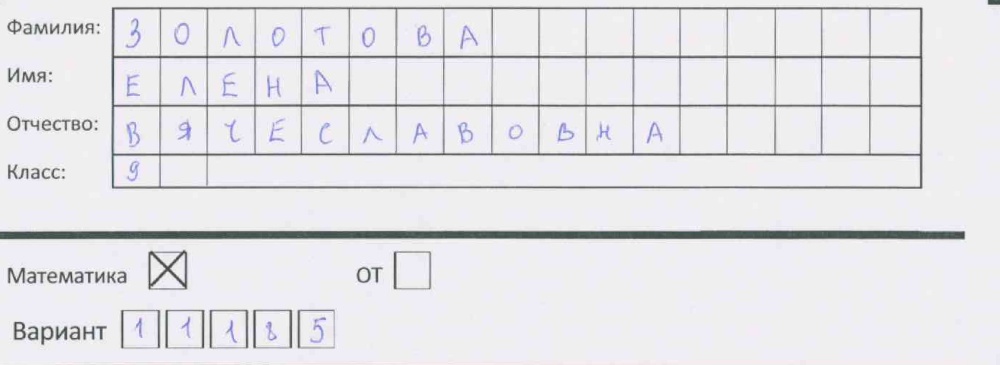 Фамилия: ЗОЛОТОВА
Имя: ЕЛЕНА
Отчество: ВЯЧЕСЛАВОВНА
Класс: 9
Математика ☒ ОТ ☐
Вариант 11185